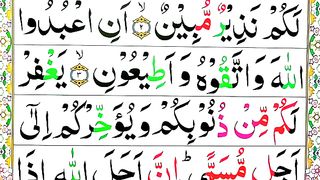 لَكُمْ نَذِيْرٌ مُّبِيْنٌ ۙ﴿۲﴾ اَنِ اعْبُدُوا
اللّٰهَ وَاتَّقُوْهُ وَاَطِيْعُوْنِ ۙ﴿۳﴾ يَغْفِرْ
لَكُمْ مِّنْ ذُنُوْبِكُمْ وَيُؤَخِّرْكُمْ اِلٰٓى
اَجَلٍ مُّسَمًّى ؕ اِنَّ اَجَلَ اللّٰهِ اِذَا